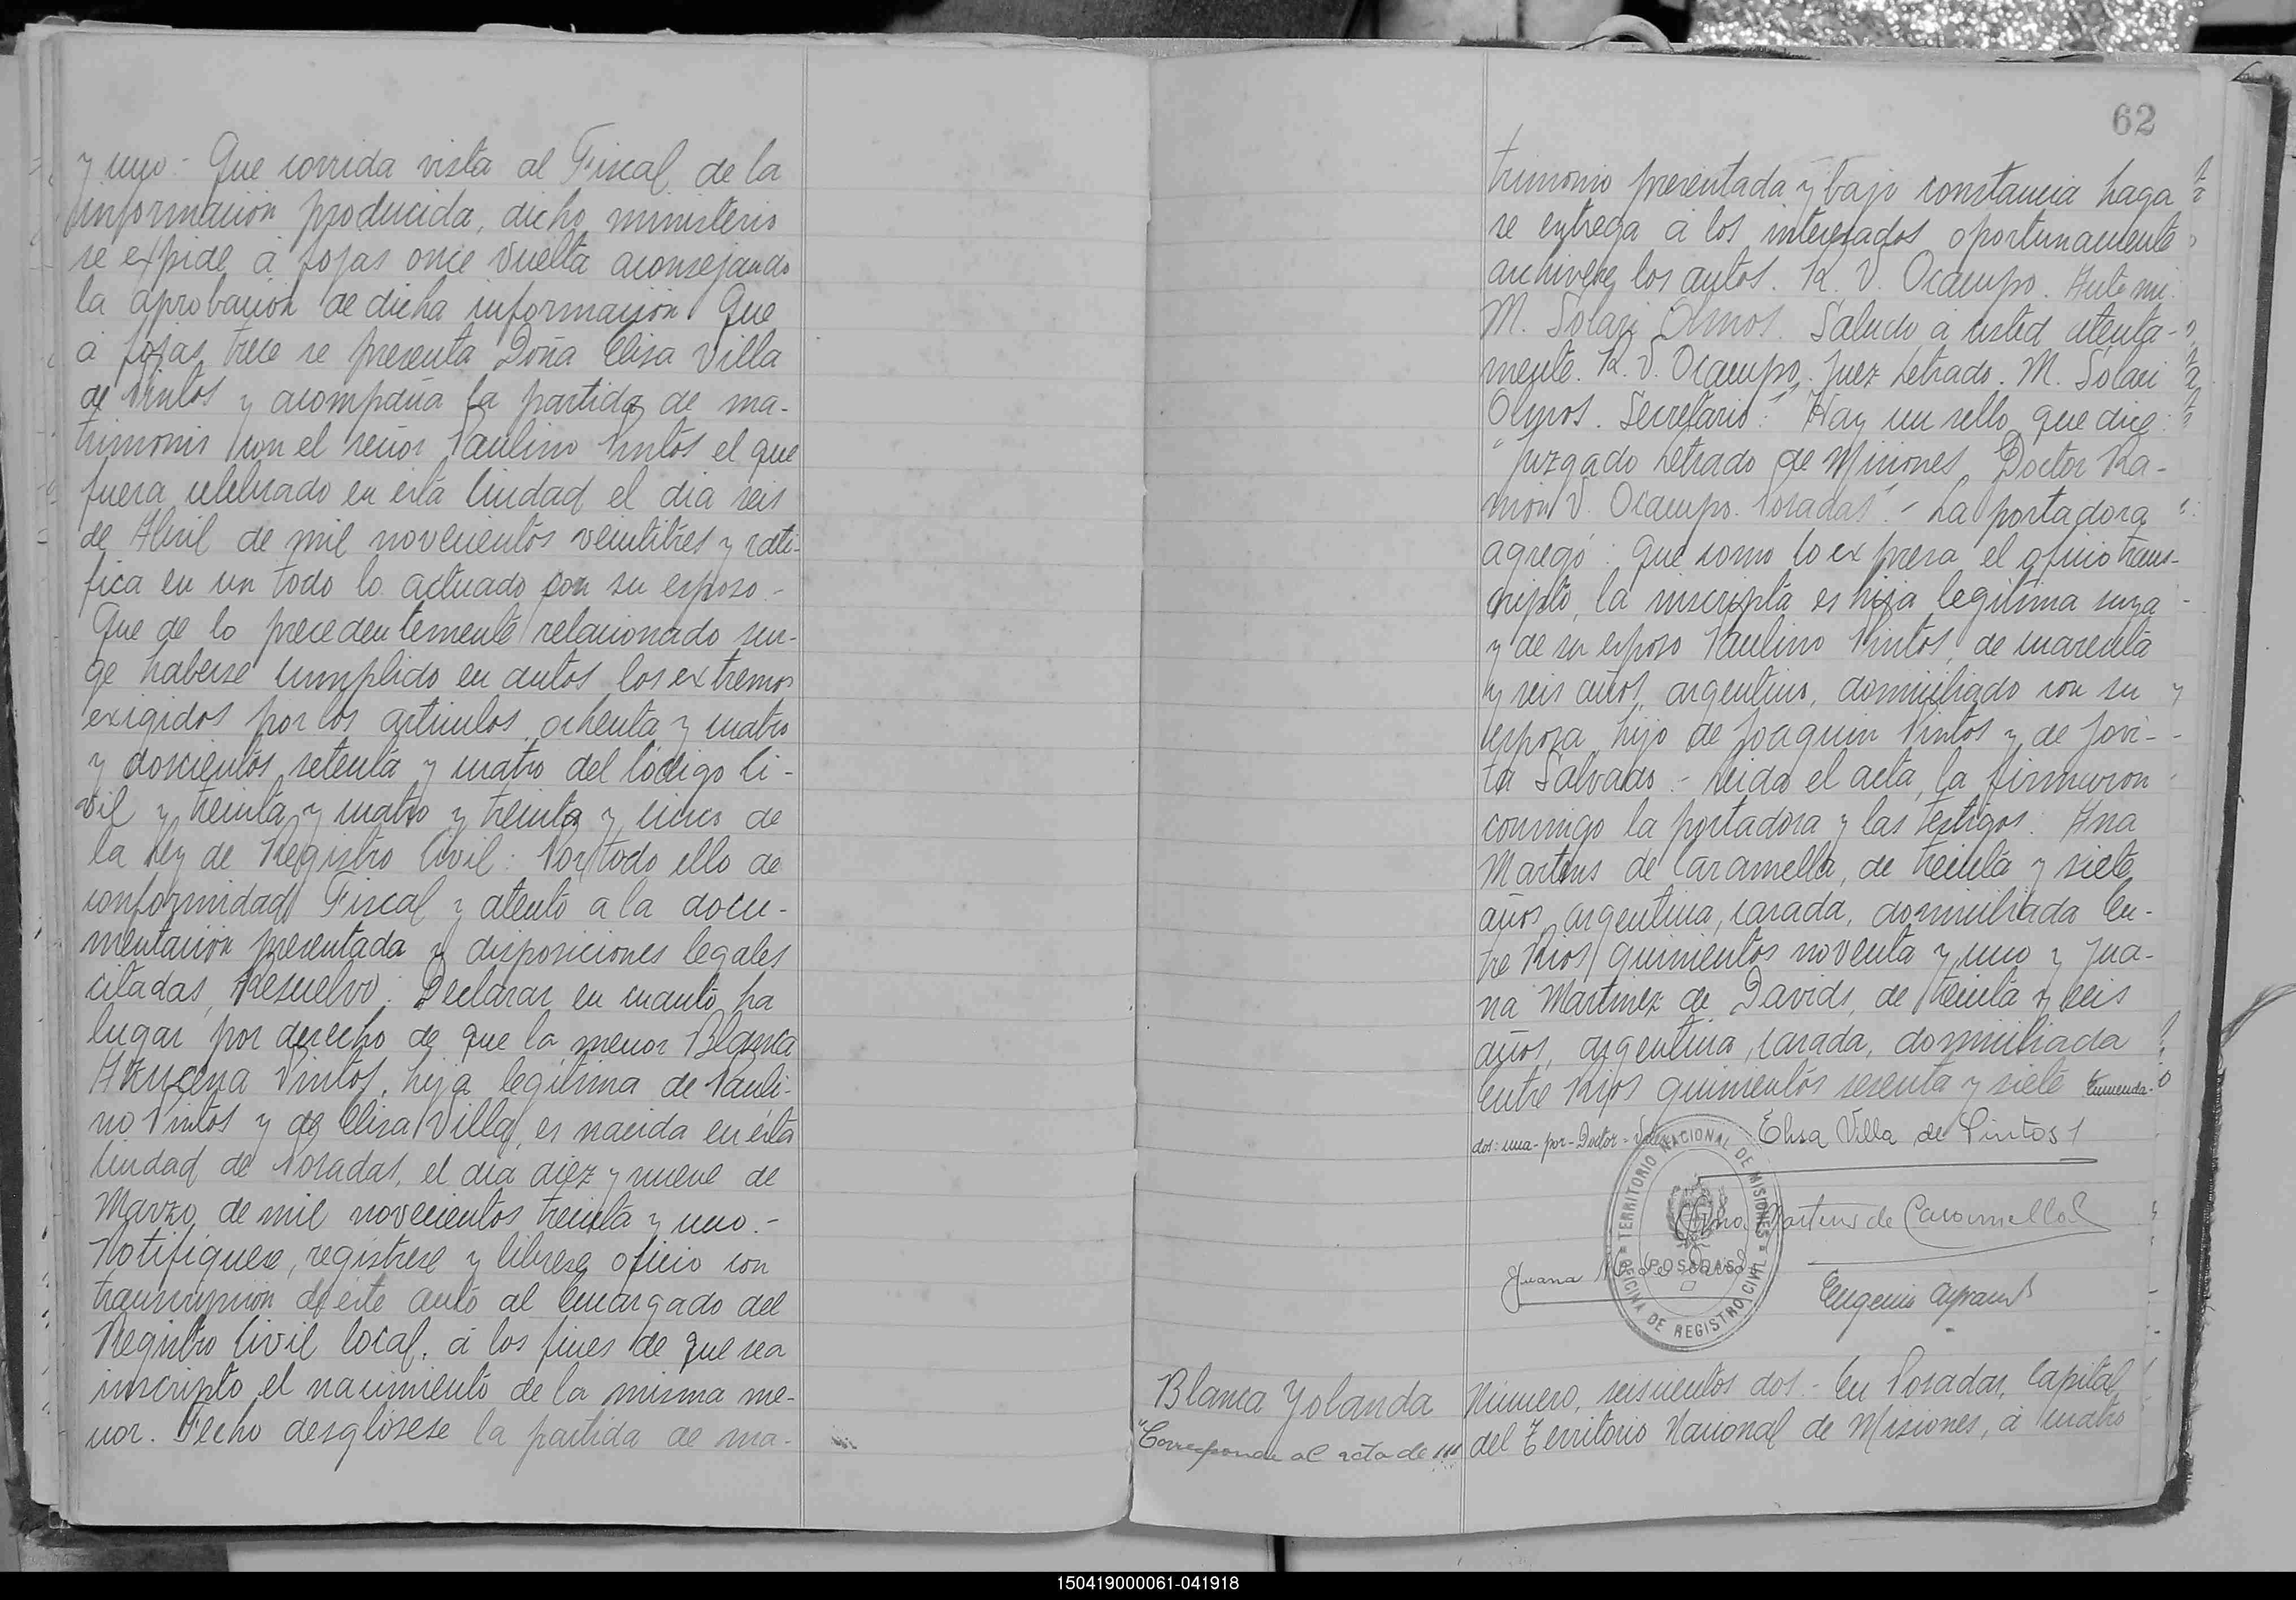 y uno - Que corrida vista al Fiscal de la
información producida, dicho ministerio
se expide á fojas once vuelta aconsejando
la aprobación de dicha información Que
á fojas trece se presenta Doña Elisa Villa
de Pintos y acompaña la partida de ma-
trimonio con el señor Paulino Pintos el que
fuera celebrado en ésta Ciudad el dia seis
de Abril de mil novecientos veintitres y rati-
fica en un todo lo actuado por su esposo.-
Que de lo precedentemente relacionado sur-
ge haberse cumplido en autos los extremos
exigidos por los artículos ochenta y cuatro
y doscientos setenta y cuatro del Código Ci-
vil y treinta y cuatro y treinta y cinco de
la Ley de Registro Civil: Por todo ello de
conformidad Fiscal y atento a la docu-
mentación presentada y disposiciones legales
citadas, Resuelvo: Declarar en cuanto ha
lugar por derecho de que la menor Blanca
Azucena Pintos, hija legítima de Pauli-
no Pintos y de Elisa Villa, es nacida en ésta
Ciudad de Posadas, el día diez y nueve de
Marzo de mil novecientos treinta y uno.-
Notifíquese, regístrese y líbrese oficio con
transcripción de éste auto al Encargado del
Registro Civil local, á los fines de que sea
inscripto el nacimiento de la misma me-
nor. Fecho desglósese la partida de ma-
62
trimonio presentada y bajo constancia haga
se entrega á los interesados oportunamente
archívese los autos. R. V. Ocampo. Ante mi.
M. Solari Olmos. Saludo á usted atenta-
mente. R. V. Ocampo. Juez Letrado. M. Solari
Olmos. Secretario." Hay un sello que dice:
"Juzgado Letrado de Misiones Doctor Ra-
món V. Ocampo. Posadas".- La portadora
agregó: Que como lo expresa el oficio trans-
cripto, la inscripta es hija legítima suya
y de su esposo Paulino Pintos, de cuarenta
y seis años, argentino, domiciliado con su
esposa, hijo de Joaquin Pintos y de Jovi-
ta Salvado.- Leida el acta, la firmaron
conmigo la portadora y las testigos: Ana
Martens de Caramella, de treinta y siete
años, argentina, casada, domiciliada En-
tre Rios quinientos noventa y uno y Jua-
na Martinez de Davids, de treinta y seis
años, argentina, casada, domiciliada
Entre Rios quinientos sesenta y siete Enmenda-
dos: una - por - Doctor - Vale
Elisa Villa de Pintos
Ana Martens de Caramella
Juana M. de Davids
Eugenio
TERRITORIO NACIONAL DE MISIONES
POSADAS
OFICINA DE REGISTRO CIVIL
Blanca Yolanda
"Corresponde al acta de
Número, seiscientos dos.- En Posadas, Capital
del Territorio Nacional de Misiones, á cuatro
150419000061-041918